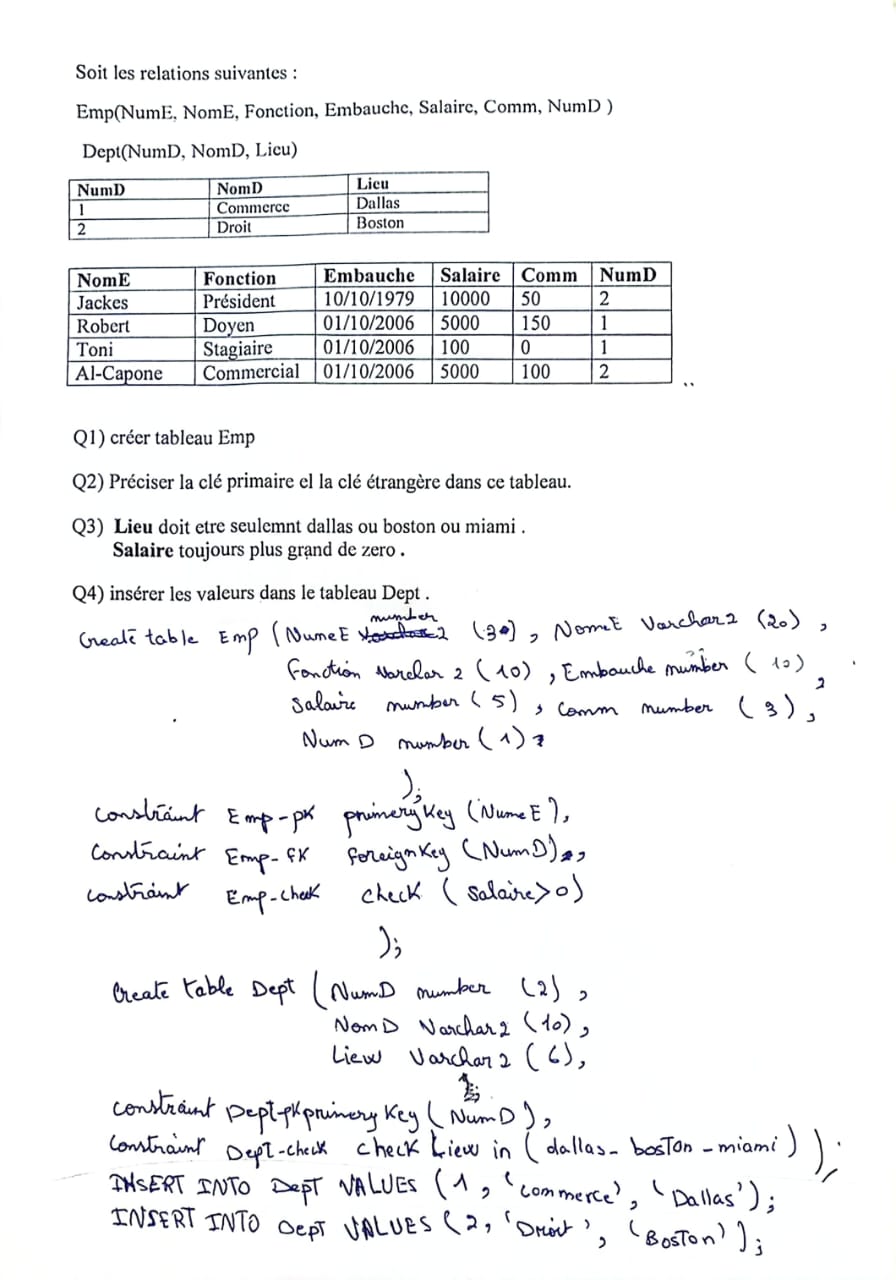 Soit les relations suivantes :
Emp(NumE, NomE, Fonction, Embauche, Salaire, Comm, NumD )
Dept(NumD, NomD, Lieu)
NumD NomD Lieu
1 Commerce Dallas
2 Droit Boston
NomE Fonction Embauche Salaire Comm NumD
Jackes Président 10/10/1979 10000 50 2
Robert Doyen 01/10/2006 5000 150 1
Toni Stagiaire 01/10/2006 100 0 1
Al-Capone Commercial 01/10/2006 5000 100 2
Q1) créer tableau Emp
Q2) Préciser la clé primaire el la clé étrangère dans ce tableau.
Q3) Lieu doit etre seulemnt dallas ou boston ou miami .
Salaire toujours plus grand de zero .
Q4) insérer les valeurs dans le tableau Dept .
number
Create table Emp (NumeE (30) , NomeE Varchar2 (20) ,
Fonction Varchar 2 (10) , Embauche number (10) ,
Salaire number (5) , Comm number (3) ,
Num D number (1) ,
);
constraint Emp-pK primeryKey (NumeE),
Constraint Emp-fK foreignKey (NumD),
constraint Emp-check check (Salaire>0)
);
Create table Dept (NumD number (2) ,
NomD Varchar2 (10) ,
Liew Varchar2 (6),
constraint Dept-pK primery Key (NumD),
constraint Dept-check check Liew in (dallas- boston -miami) );
INSERT INTO Dept VALUES (1, 'Commerce', 'Dallas');
INSERT INTO Dept VALUES (2, 'Droit', 'Boston');